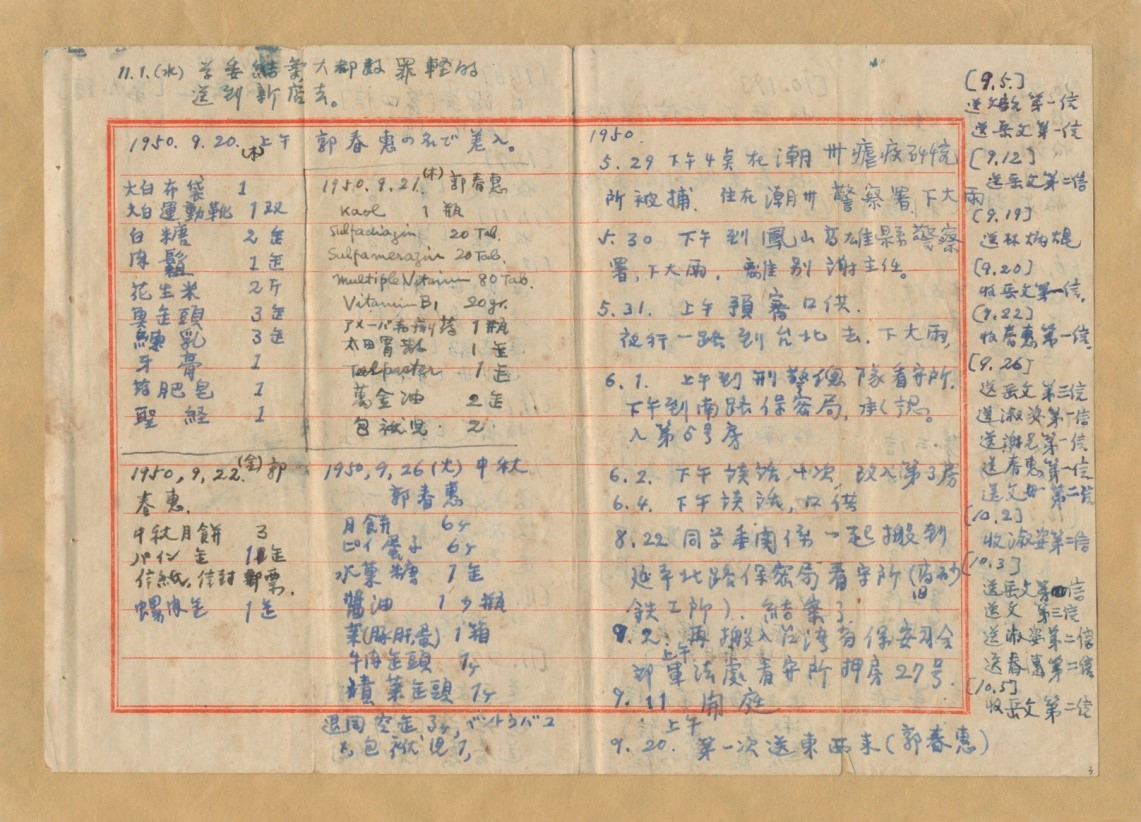 11.1.(水) 学委結案大都数罪軽的
送到新店去。
1950.9.20.(水)上午 郭春惠の名で差入。
大白布袋 1
大白運動靴 1双
白糖 2缶
肉鬆 1缶
花生米 2斤
奧缶頭 3缶
練乳 3缶
牙膏 1
肥皂 1
聖経 1
1950.9.21.(木)郭春惠
Kaol 1瓶
Sulfadiagin 20 Tab.
Sulfameragin 20 Tab.
Multiple Vitamin 80 Tab.
Vitamin B1 20gr.
アメーバ 1瓶
太田胃散 1缶
1缶
萬金油 2缶
包袱児. 2
1950,9,22.(金)郭
春惠.
中秋月餅 3
パイン缶 1缶
信紙,信封 郵票.
螺肉缶 1缶
1950,9,26(火)中秋
郭春惠
月餅 6ヶ
ピイ蛋子 6ヶ
水菓糖 1缶
醬油 1少瓶
菜(豚肝蛋)1箱
牛肉缶頭 1ヶ
漬菜缶頭 1ヶ
退回空缶3ヶ,ベントウバコ
包袱児1,
1950.
5.29 下午4点在潮州瘧疾研究
所被捕. 住在潮州警察署.下大雨
5.30 下午到鳳山高雄縣警察
署,下大雨. 離別謝主任。
5.31. 上午預審口供.
夜行一路到台北去.下大雨,
6.1. 上午到刑警總隊看守所.
下午到南路保密局,承認。
入第5号房
6.2. 下午談話十次,改入第3房
6.4. 下午談話,口供
8.22 同学委関係一起搬到
延平北路保密局看守所(旧高砂
鉄工所).結案了.
9.2. 上午再搬入台湾省保安司令
部軍法處看守所押房27号.
9.11 開庭
9.20. 上午第一次送東西来(郭春惠)
[9.5]
送 第一信
送岳文第一信
[9.12]
送岳文第二信
[9.19]
送林炳焜
[9.20]
收岳文第一信.
[9.22]
收春惠第一信.
[9.26]
送岳文第三信
送淑姿第一信
送謝 第一信
送春惠第一信
送文 第二信
[10.2]
收淑姿第二信
[10.3]
送岳文第 信
送文 第三信
送淑姿第二信
送春惠第二信
[10.5]
收岳文第二信
3